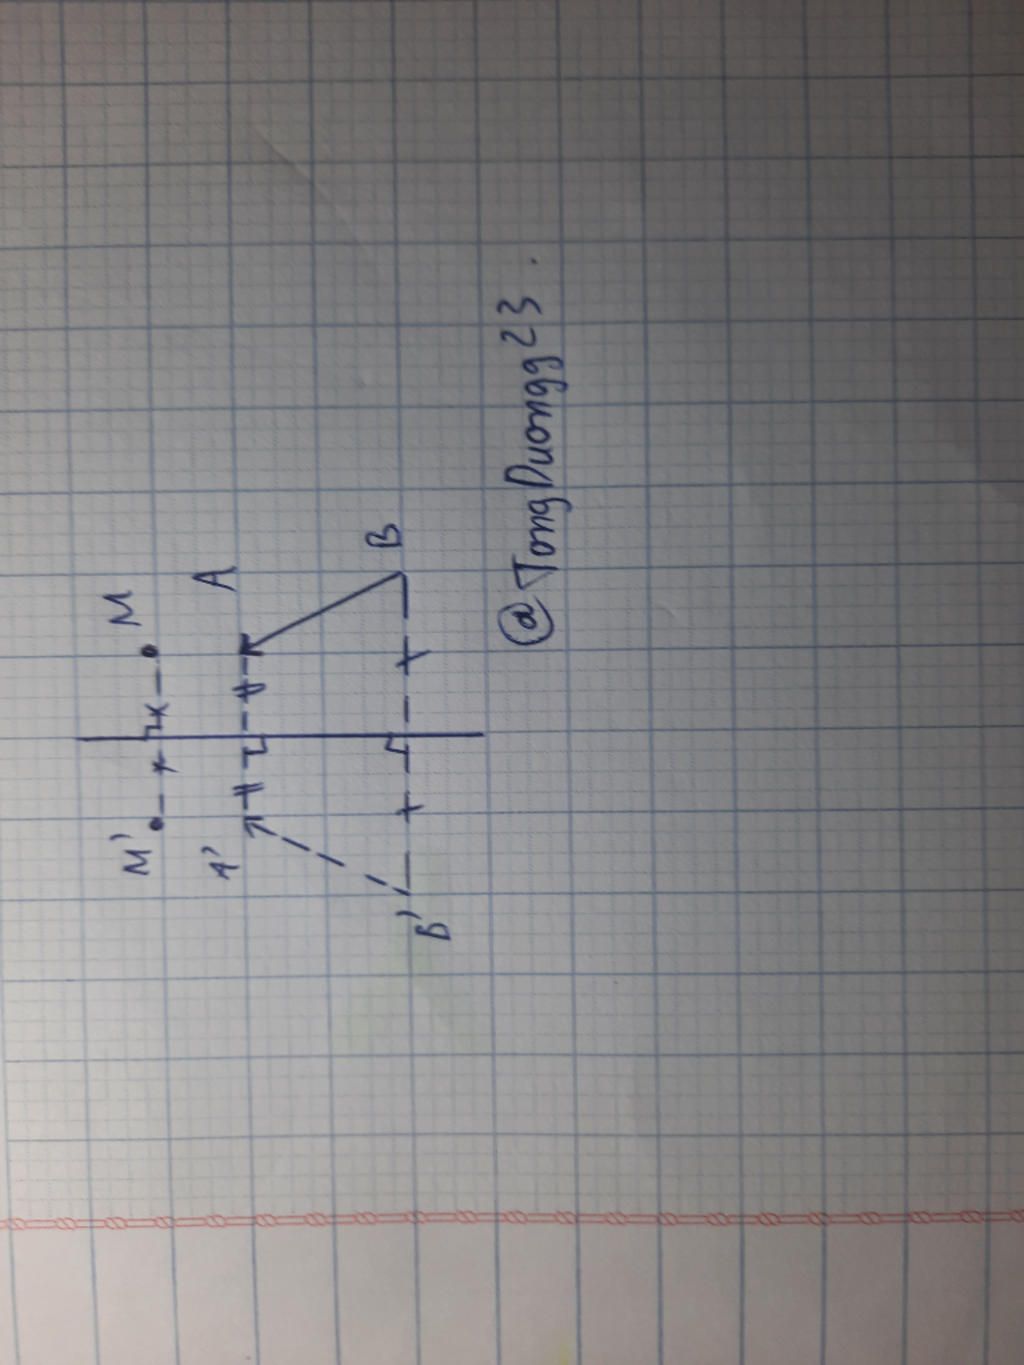 M' M
A' A
B' B
@TongDuongg23.